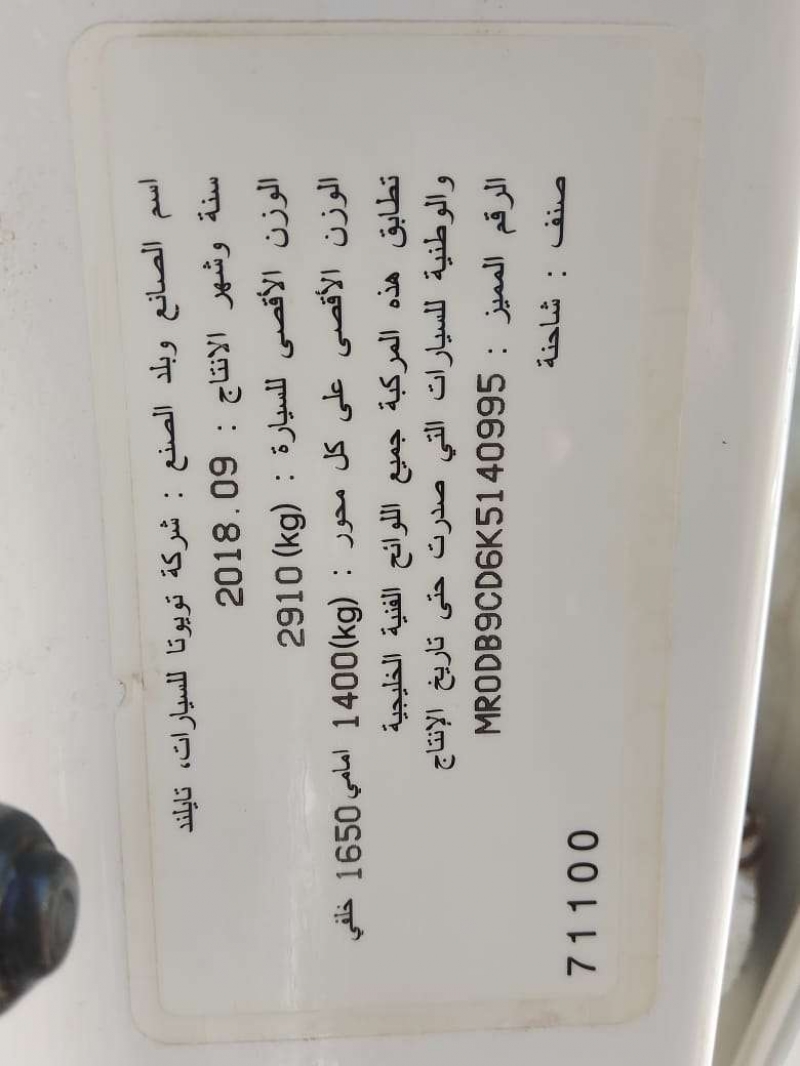 اسم الصانع وبلد الصنع : شركة تويوتا للسيارات، تايلند
سنة وشهر الانتاج : 2018.09
الوزن الأقصى للسيارة : 2910(kg)
الوزن الأقصى على كل محور : 1400(kg) امامي 1650 خلفي
تطابق هذه المركبة جميع اللوائح الفنية الخليجية
والوطنية للسيارات التي صدرت حتى تاريخ الإنتاج
الرقم المميز : MR0DB9CD6K5140995
صنف : شاحنة
71100